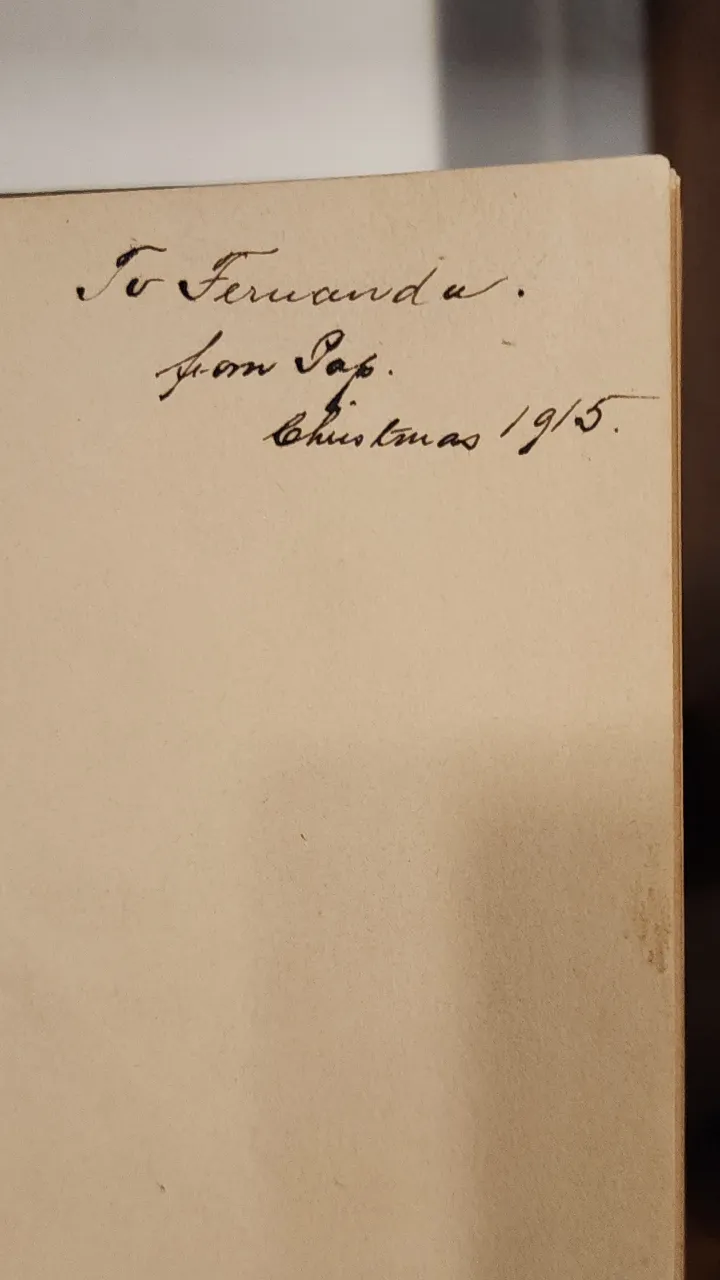 To Fernanda.
from Pap.
Christmas 1915.